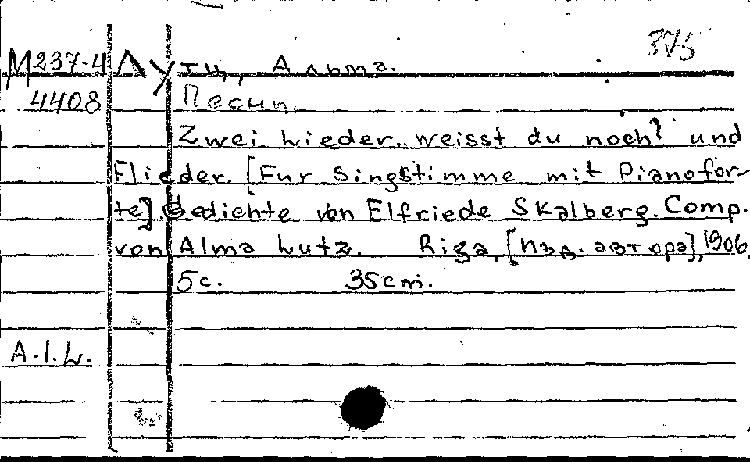 375
М237-4 Лутц, Альма.
4408 Песни
Zwei Lieder. weisst du noch? und
Flieder. [Fur Singstimme mit Pianofor-
te] Gedichte von Elfriede Skalberg. Comp.
von Alma Lutz. Riga, [изд. автора], 1906.
5с. 35cm.
A.I.L.